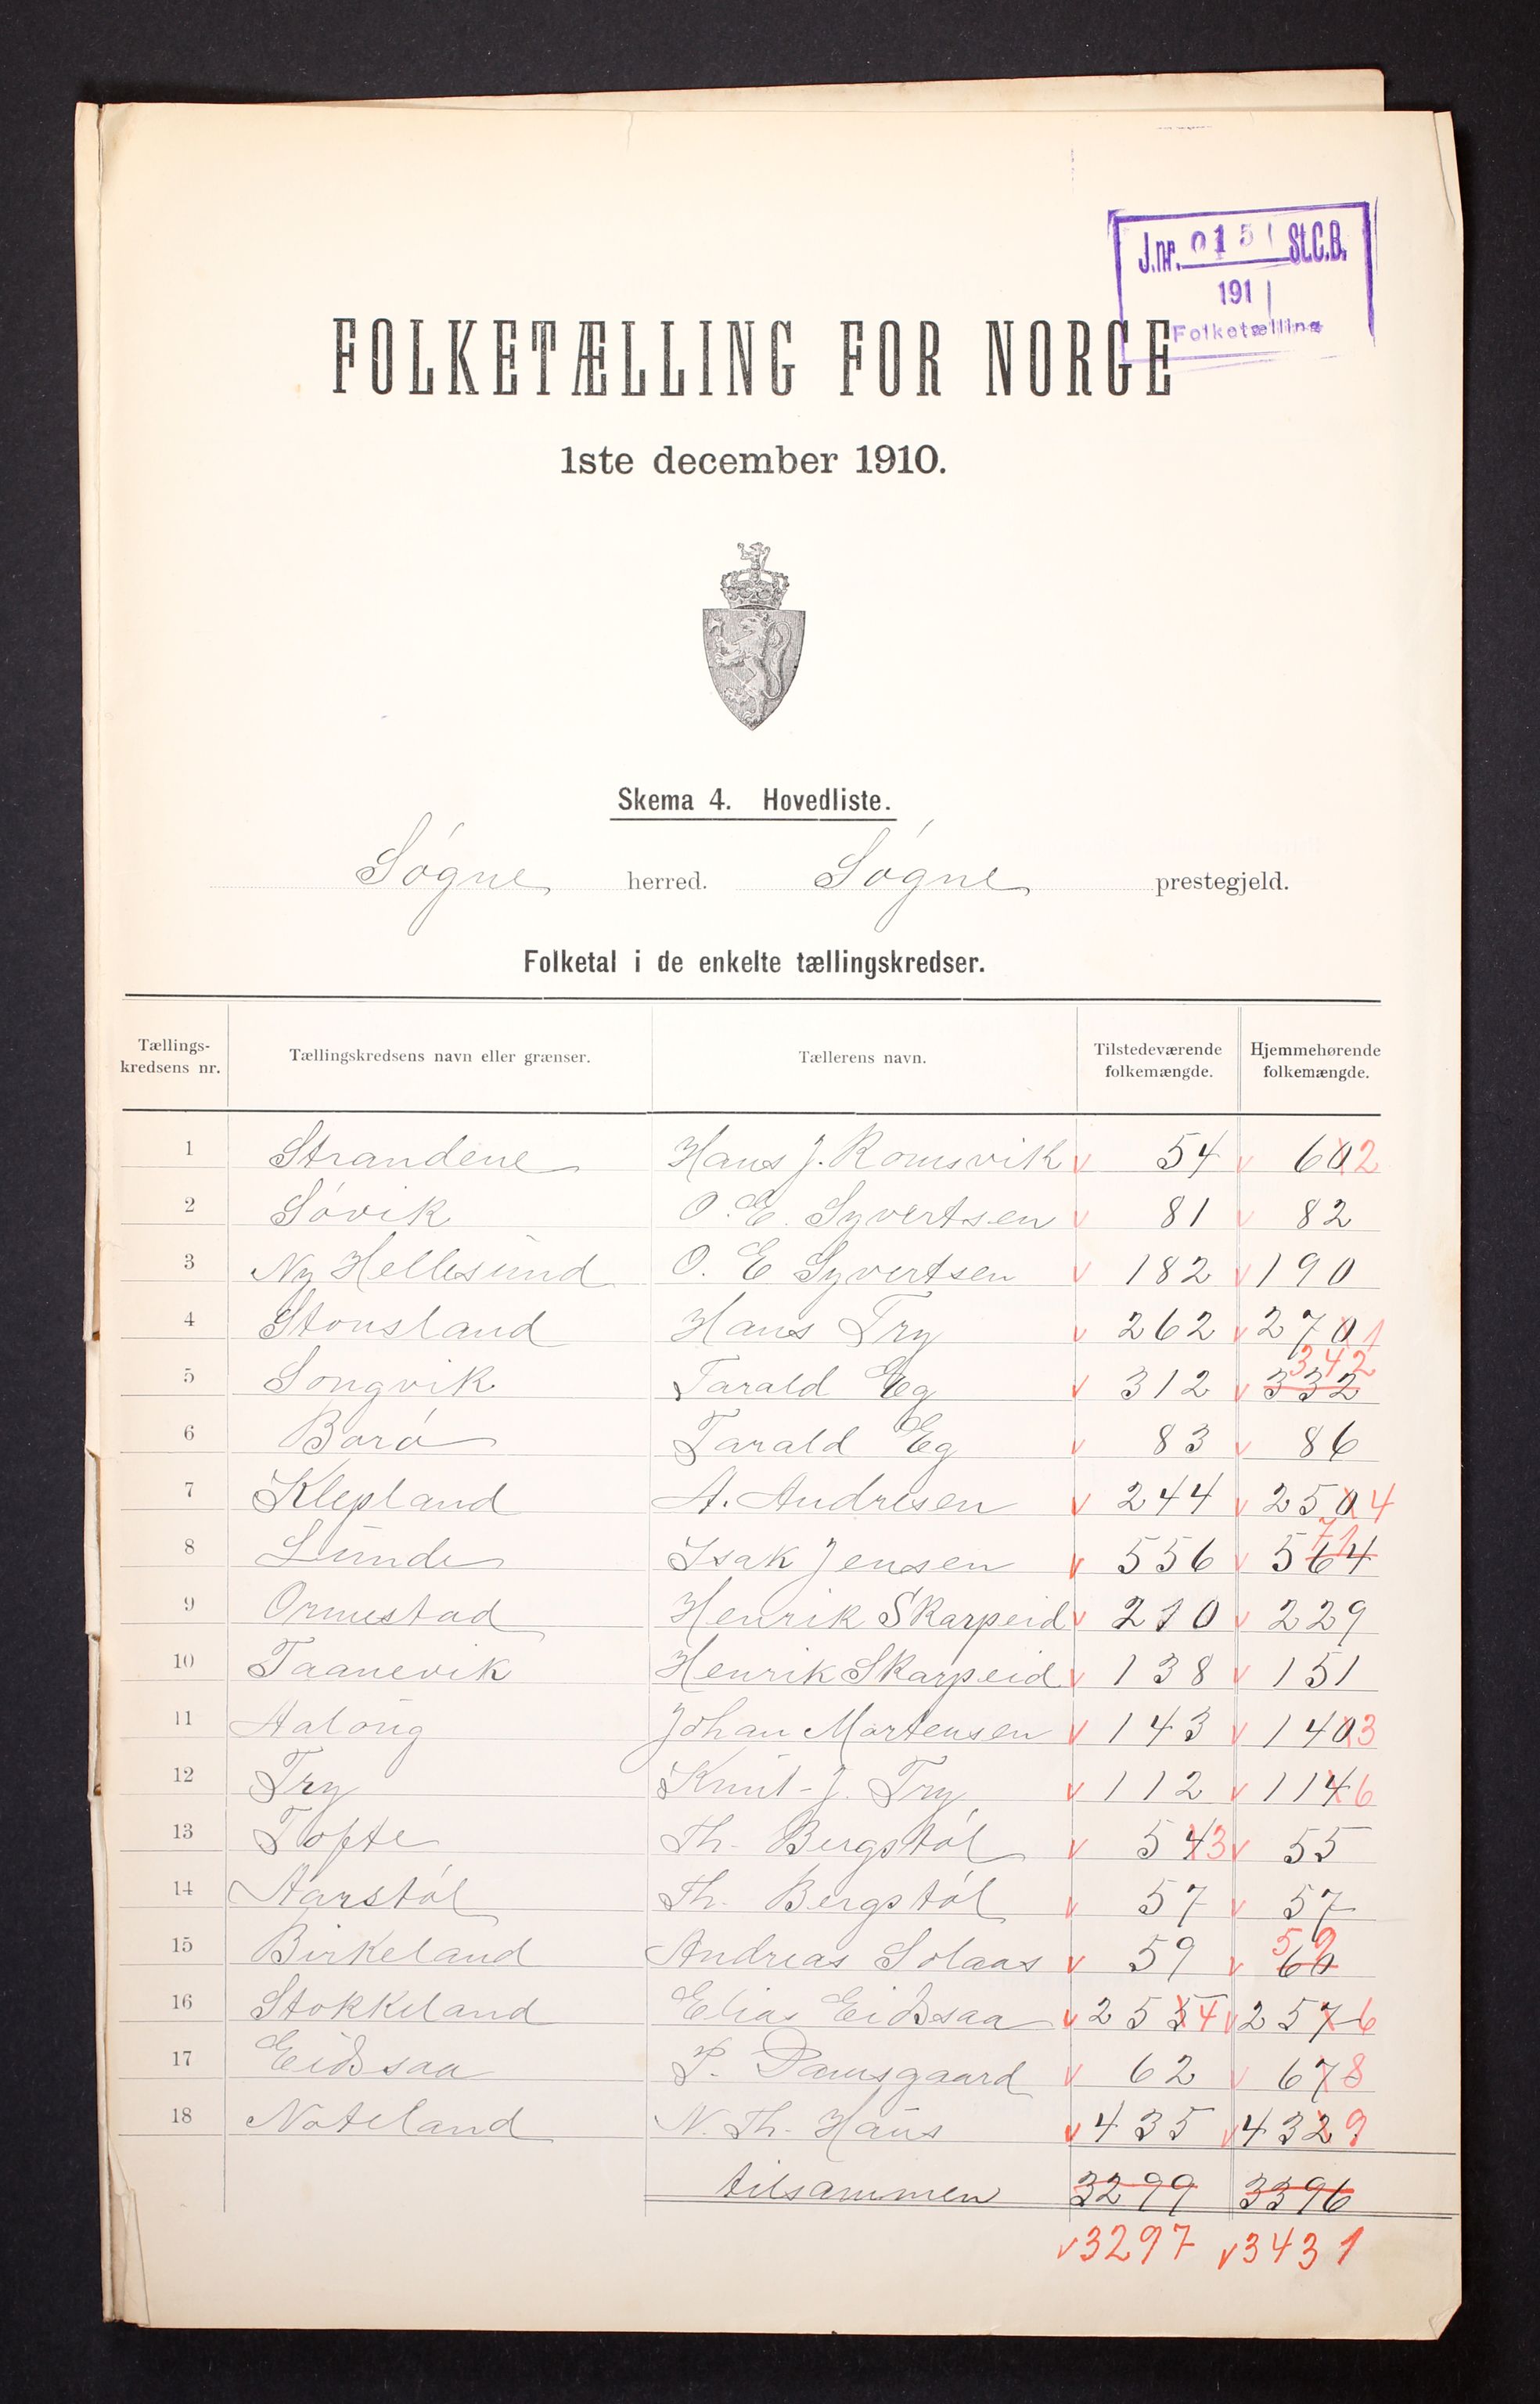 J.nr. 0151 St.C.B.
191
Folketælling
FOLKETÆLLING FOR NORGE
1ste december 1910.
Skema 4. Hovedliste.
Søgne herred. Søgne prestegjeld.
Folketal i de enkelte tællingskredser.
Tællings-kredsens nr. Tællingskredsens navn eller grænser. Tællerens navn. Tilstedeværende folkemængde. Hjemmehørende folkemængde.
1 Strandene Hans J. Romsvik v 54 v 602
2 Søvik O. E. Syvertsen v 81 v 82
3 Ny Hellesund O. E Syvertsen v 182 v 190
4 Stousland Hans Try v 262 v 2701
5 Songvik Tarald Eg v 312 v 332 342
6 Borø Tarald Eg v 83 v 86
7 Klepland A. Andresen v 244 v 2504
8 Lunde Isak Jensen v 556 v 564 71
9 Ormestad Henrik Skarpeid v 210 v 229
10 Taanevik Henrik Skarpeid v 138 v 151
11 Aaloug Johan Mortensen v 143 v 1403
12 Try Knut J. Try v 112 v 1146
13 Tofte Th. Bergstøl v 543 v 55
14 Aarstøl Th. Bergstøl v 57 v 57
15 Birkeland Andreas Solaas v 59 v 60 59
16 Stokkeland Elias Eidsaa v 2554 v 2576
17 Eidsaa P. Damsgaard v 62 v 678
18 Noteland N. Th. Haus v 435 v 4329
tilsammen 3299 3396
v 3297 v 3431